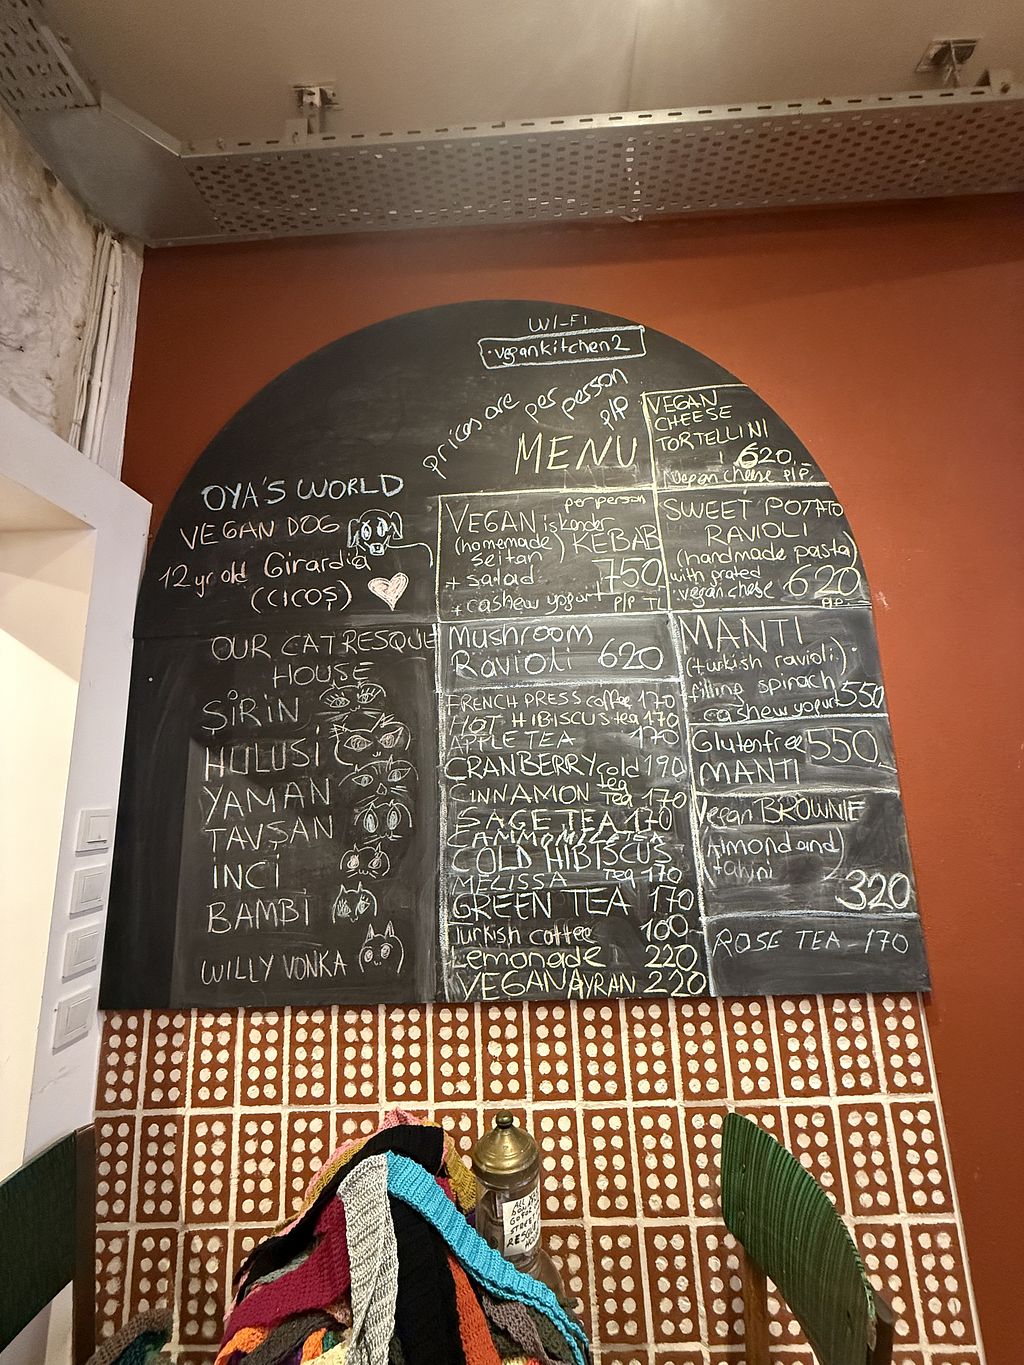 WI-FI
vegankitchen2
prices are per person
P/P
MENU
OYA'S WORLD
VEGAN DOG
12 yr old Girardia
(CICOŞ)
OUR CAT RESQUE
HOUSE
ŞİRİN
HULUSİ
YAMAN
TAVŞAN
İNCİ
BAMBİ
WILLY VONKA
per person
VEGAN iskender
(homemade) KEBAB
seitan
+ salad 750
+ cashew yogurt P/P TL
Mushroom
Ravioli 620
FRENCH PRESS coffee 170
HOT HIBISCUS tea 170
APPLE TEA 170
CRANBERRY cold tea 190
CINNAMON Tea 170
SAGE TEA 170
CAMMOMILE TEA
COLD HIBISCUS
MELISSA tea 170
GREEN TEA 170
Turkish coffee 160
Lemonade 220
VEGAN AYRAN 220
VEGAN
CHEESE
TORTELLINI
620.-
Vegan cheese P/P
SWEET POTATO
RAVIOLI
(handmade pasta)
with grated
vegan chese 620
P/P
MANTI
(turkish ravioli)
filling spinach
cashew yogurt 550
Glutenfree 550
MANTI
Vegan BROWNIE
Almond and
tahini
320
ROSE TEA 170